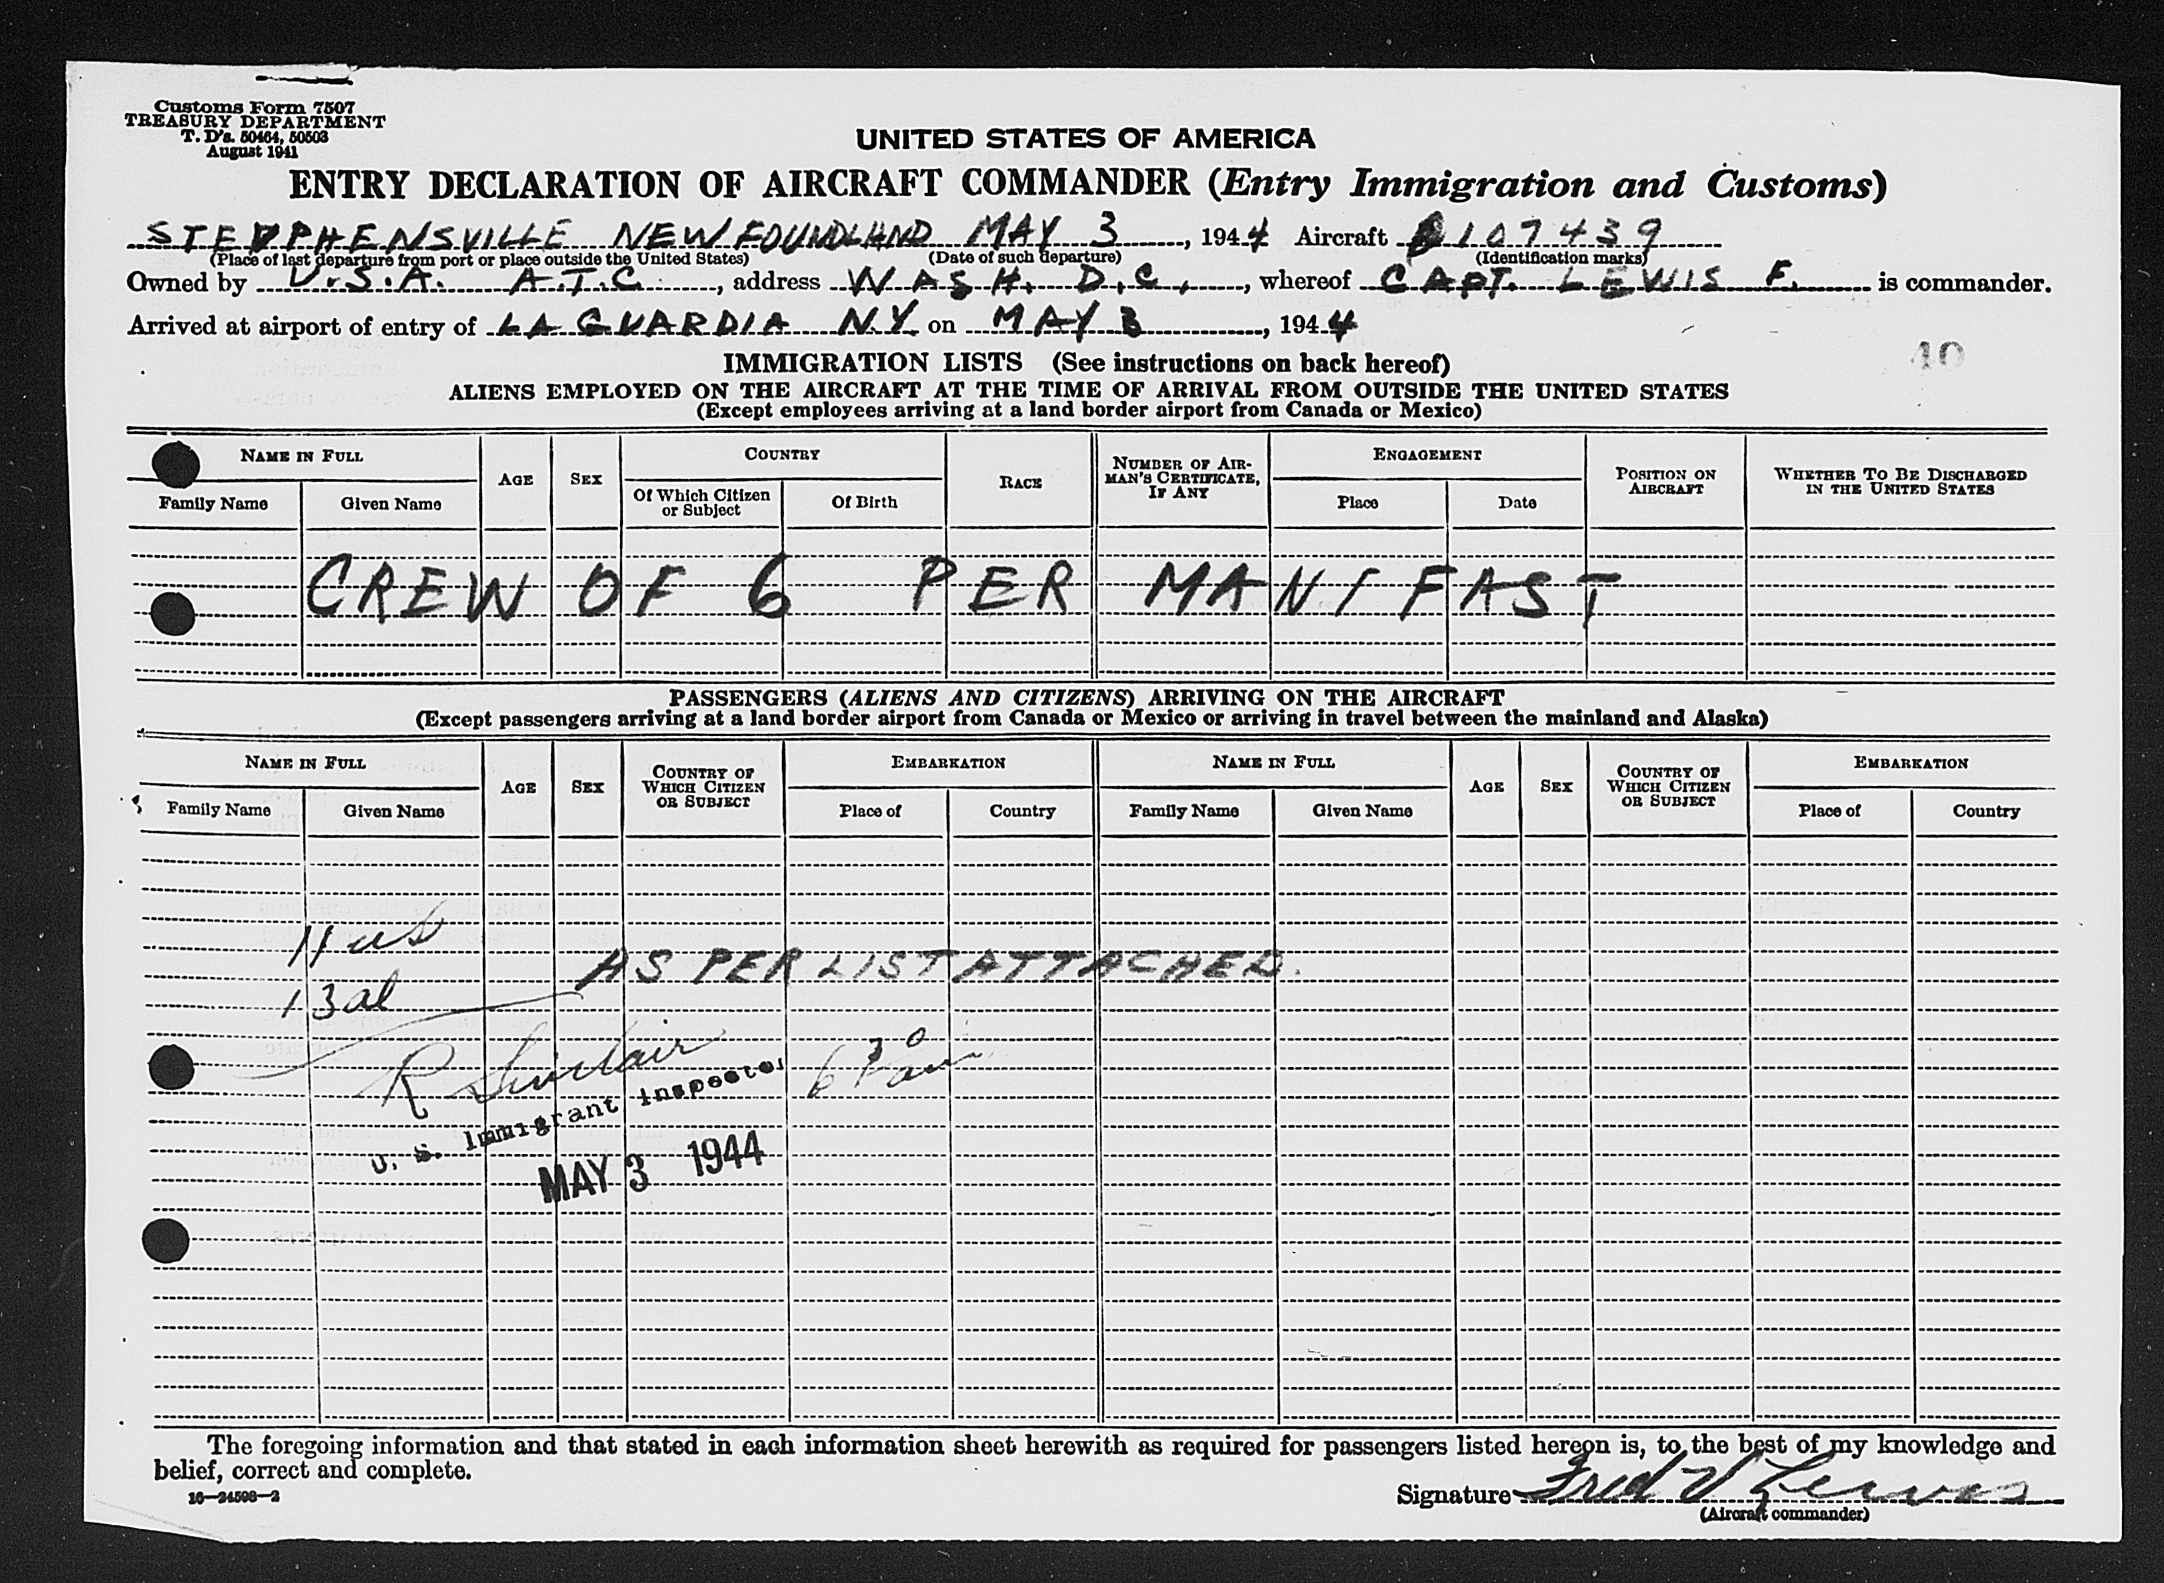 Customs Form 7507
TREASURY DEPARTMENT
T. D's. 50464, 50503
August 1941
UNITED STATES OF AMERICA
ENTRY DECLARATION OF AIRCRAFT COMMANDER (Entry Immigration and Customs)
STEPHENSVILLE NEWFOUNDLAND MAY 3, 1944 Aircraft 107439
(Place of last departure from port or place outside the United States) (Date of such departure) (Identification marks)
Owned by U.S.A. A.T.C., address WASH. D.C., whereof CAPT. LEWIS F. is commander.
Arrived at airport of entry of LA GUARDIA N.Y. on MAY 3, 1944
40
IMMIGRATION LISTS (See instructions on back hereof)
ALIENS EMPLOYED ON THE AIRCRAFT AT THE TIME OF ARRIVAL FROM OUTSIDE THE UNITED STATES
(Except employees arriving at a land border airport from Canada or Mexico)
NAME IN FULL AGE SEX COUNTRY RACE NUMBER OF AIRMAN'S CERTIFICATE, IF ANY ENGAGEMENT POSITION ON AIRCRAFT WHETHER TO BE DISCHARGED IN THE UNITED STATES
Family Name Given Name Of Which Citizen or Subject Of Birth Place Date
CREW OF 6 PER MANIFAST
PASSENGERS (ALIENS AND CITIZENS) ARRIVING ON THE AIRCRAFT
(Except passengers arriving at a land border airport from Canada or Mexico or arriving in travel between the mainland and Alaska)
NAME IN FULL AGE SEX COUNTRY OF WHICH CITIZEN OR SUBJECT EMBARKATION NAME IN FULL AGE SEX COUNTRY OF WHICH CITIZEN OR SUBJECT EMBARKATION
Family Name Given Name Place of Country Family Name Given Name Place of Country
11 us
AS PER LIST ATTACHED.
13 al
R Sinclair 6 30 am
U. S. Immigrant Inspector
MAY 3 1944
The foregoing information and that stated in each information sheet herewith as required for passengers listed hereon is, to the best of my knowledge and
belief, correct and complete.
16—24598—2
Signature Fred V Lewis
(Aircraft commander)